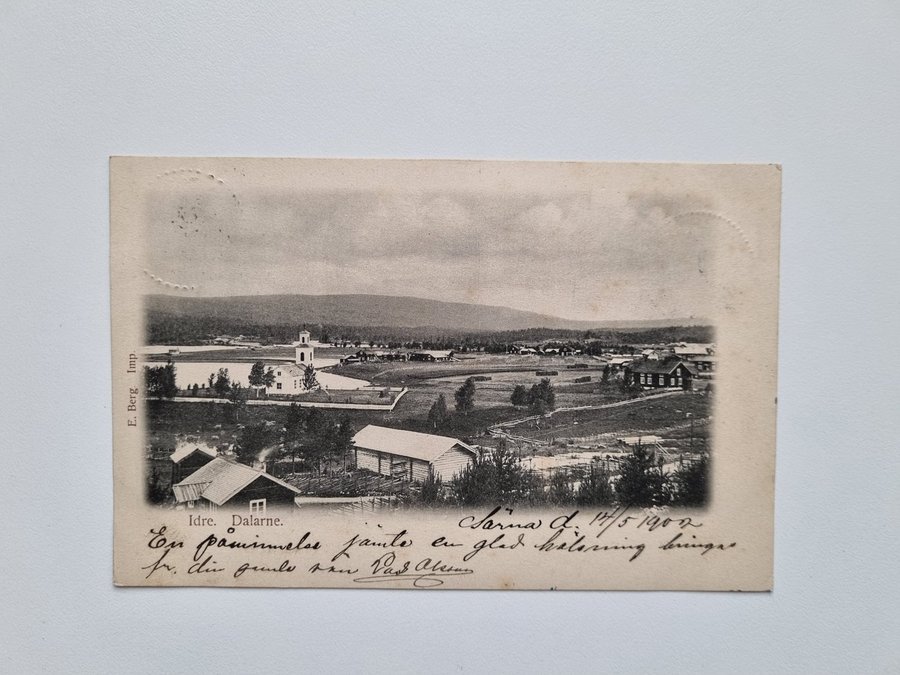 E. Berg Imp.
Idre. Dalarne.
Särna d. 14/5 1902
En påminnelse jämte en glad hälsning bringas
fr. din gamle vän